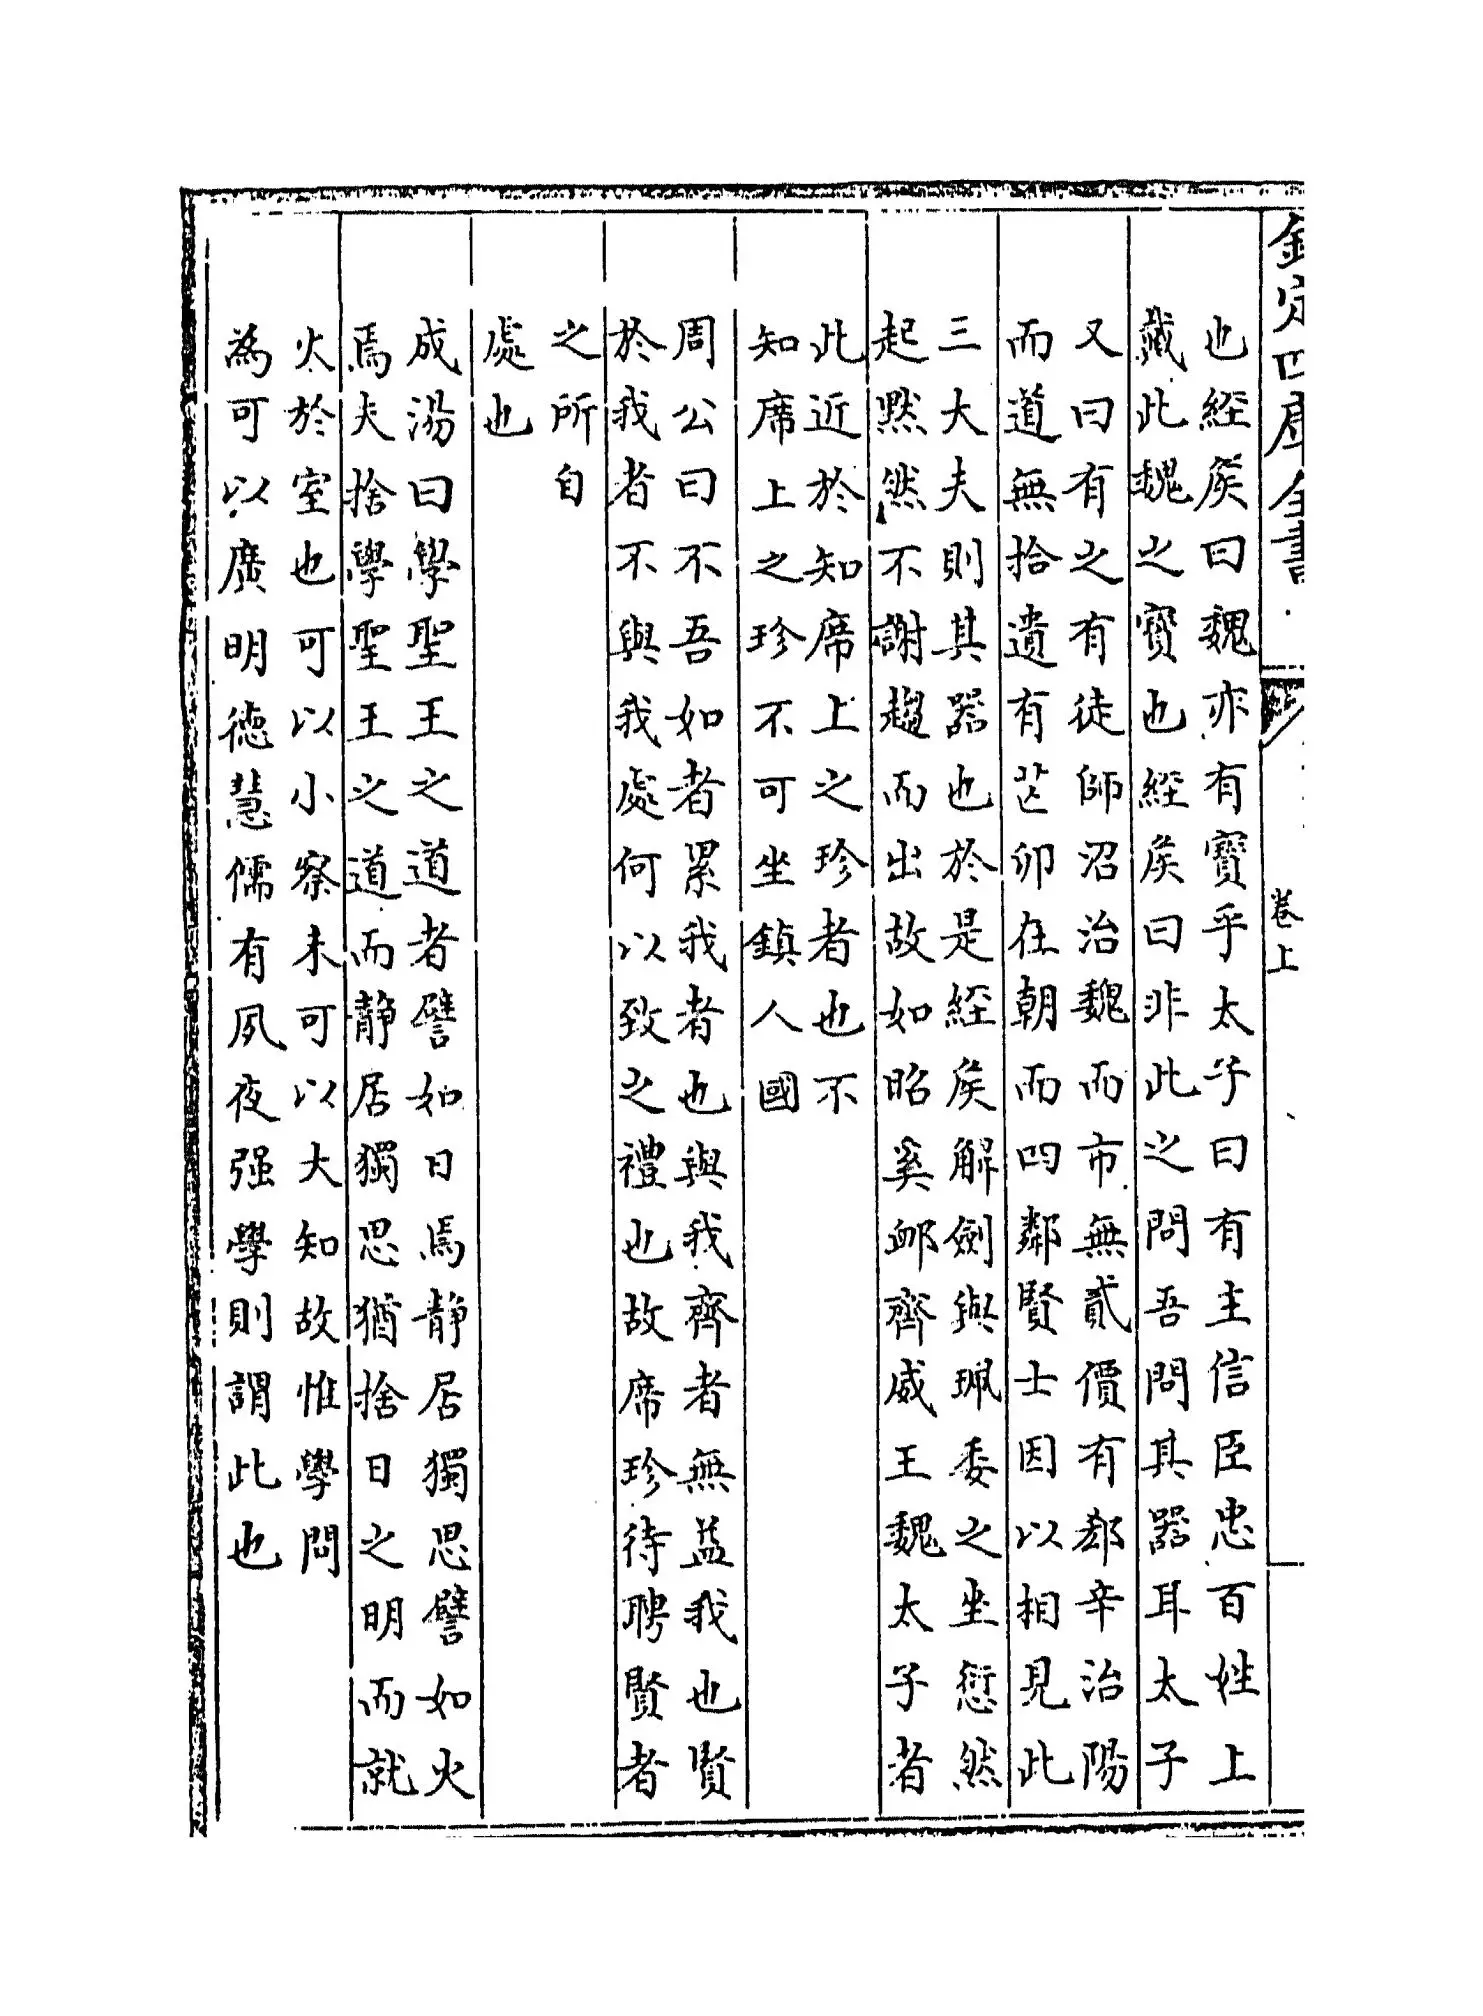 欽定四庫全書
卷上
也經矦曰魏亦有寶乎太子曰有主信臣忠百姓上
戴此魏之寶也經矦曰非此之問吾問其器耳太子
又曰有之有徒師沼治魏而市無貳價有郄辛治陽
而道無拾遺有芒卯在朝而四鄰賢士因以相見此
三大夫則其器也於是經矦解劍與珮委之坐愆然
起默然不謝趨而出故如昭奚邮齊威王魏太子者
此近於知席上之珍者也不
知席上之珍不可坐鎮人國
周公曰不吾如者累我者也與我齊者無益我也賢
於我者不與我處何以致之禮也故席珍待聘賢者
之所自
處也
成湯曰學聖王之道者譬如日焉靜居獨思譬如火
焉夫捨學聖王之道而靜居獨思猶捨日之明而就
火於室也可以小察未可以大知故惟學問
為可以廣明德慧儒有夙夜强學則謂此也